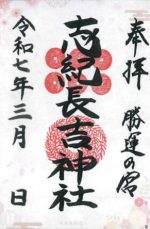 奉拝
勝運の宮
志紀長吉神社
令和七年三月 日